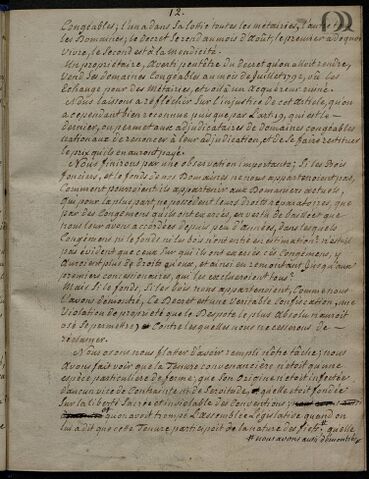 12.
Congéables; l'un a dans sa lotie toutes les métairies, l'autre
les Domaines, le decret se rend au mois d'Août, le premier a de quoi
vivre, le Second est à la mendicité.
Un propriétaire, Averti peut être du Decret qu'on allait rendre,
vend ses domaines Congéables au mois de Juillet 1792, où les
Echange pour des Métairies, et voilà un Acquéreur ruiné.
Nous laissons à réfléchir Sur l'injustice de cet Article, qu'on
a cependant bien reconnue puisque par l'art. 19, qui est le
dernier, on permet aux adjudicataires de domaines congéables
nationaux de renoncer à leur adjudication, et de se faire restituer
le prix qu'ils en auront payé.
Nous finirons par une observation importante; Si les Bois
fonciers, et le fonds de nos Domaines ne nous appartenoient pas,
Comment pourroient ils appartenir aux Domaniers actuels,
qui pour la plus part, ne possèdent leurs droits réparatoires, que
par des Congémens qu'ils ont exercés, en vertu de baillées que
nous leur avons accordées depuis peu d'années, dans lesquels
Congémens ni le fonds ni les bois n'ont entré en estimation? n'est il
pas évident que ceux Sur qui ils ont exercés ces Congémens, y
auroient plus de Droits qu'eux, et ainsi en remontant jusqu'aux
premiers concessionaires, qui les excluroient tous?
Mais Si le fonds, Si les bois nous appartiennent, Comme nous
l'avons démontré, Ce Decret est une Véritable Confiscation, une
Violation de propriété que le Despote le plus Absolu n'auroit
osé Se permettre, Contre lesquelles nous ne cesserons de
réclamer.
Nous osons nous flatter d'avoir rempli nôtre tâche; nous
avons fait voir que la Tenure convenancière n'étoit qu'une
espèce particulière de ferme; que Son Origine n'étoit infectée
d'aucun vice de Contrainte et de Servitude, qu'elle étoit fondée
Sur la liberté Sacrée et inviolable des Conventions
qu'on avoit trompé l'Assemblée Législative quand on
lui a dit que cette Tenure participoit de la nature des fiefs, # qu'elle
# nous avons aussi démontré